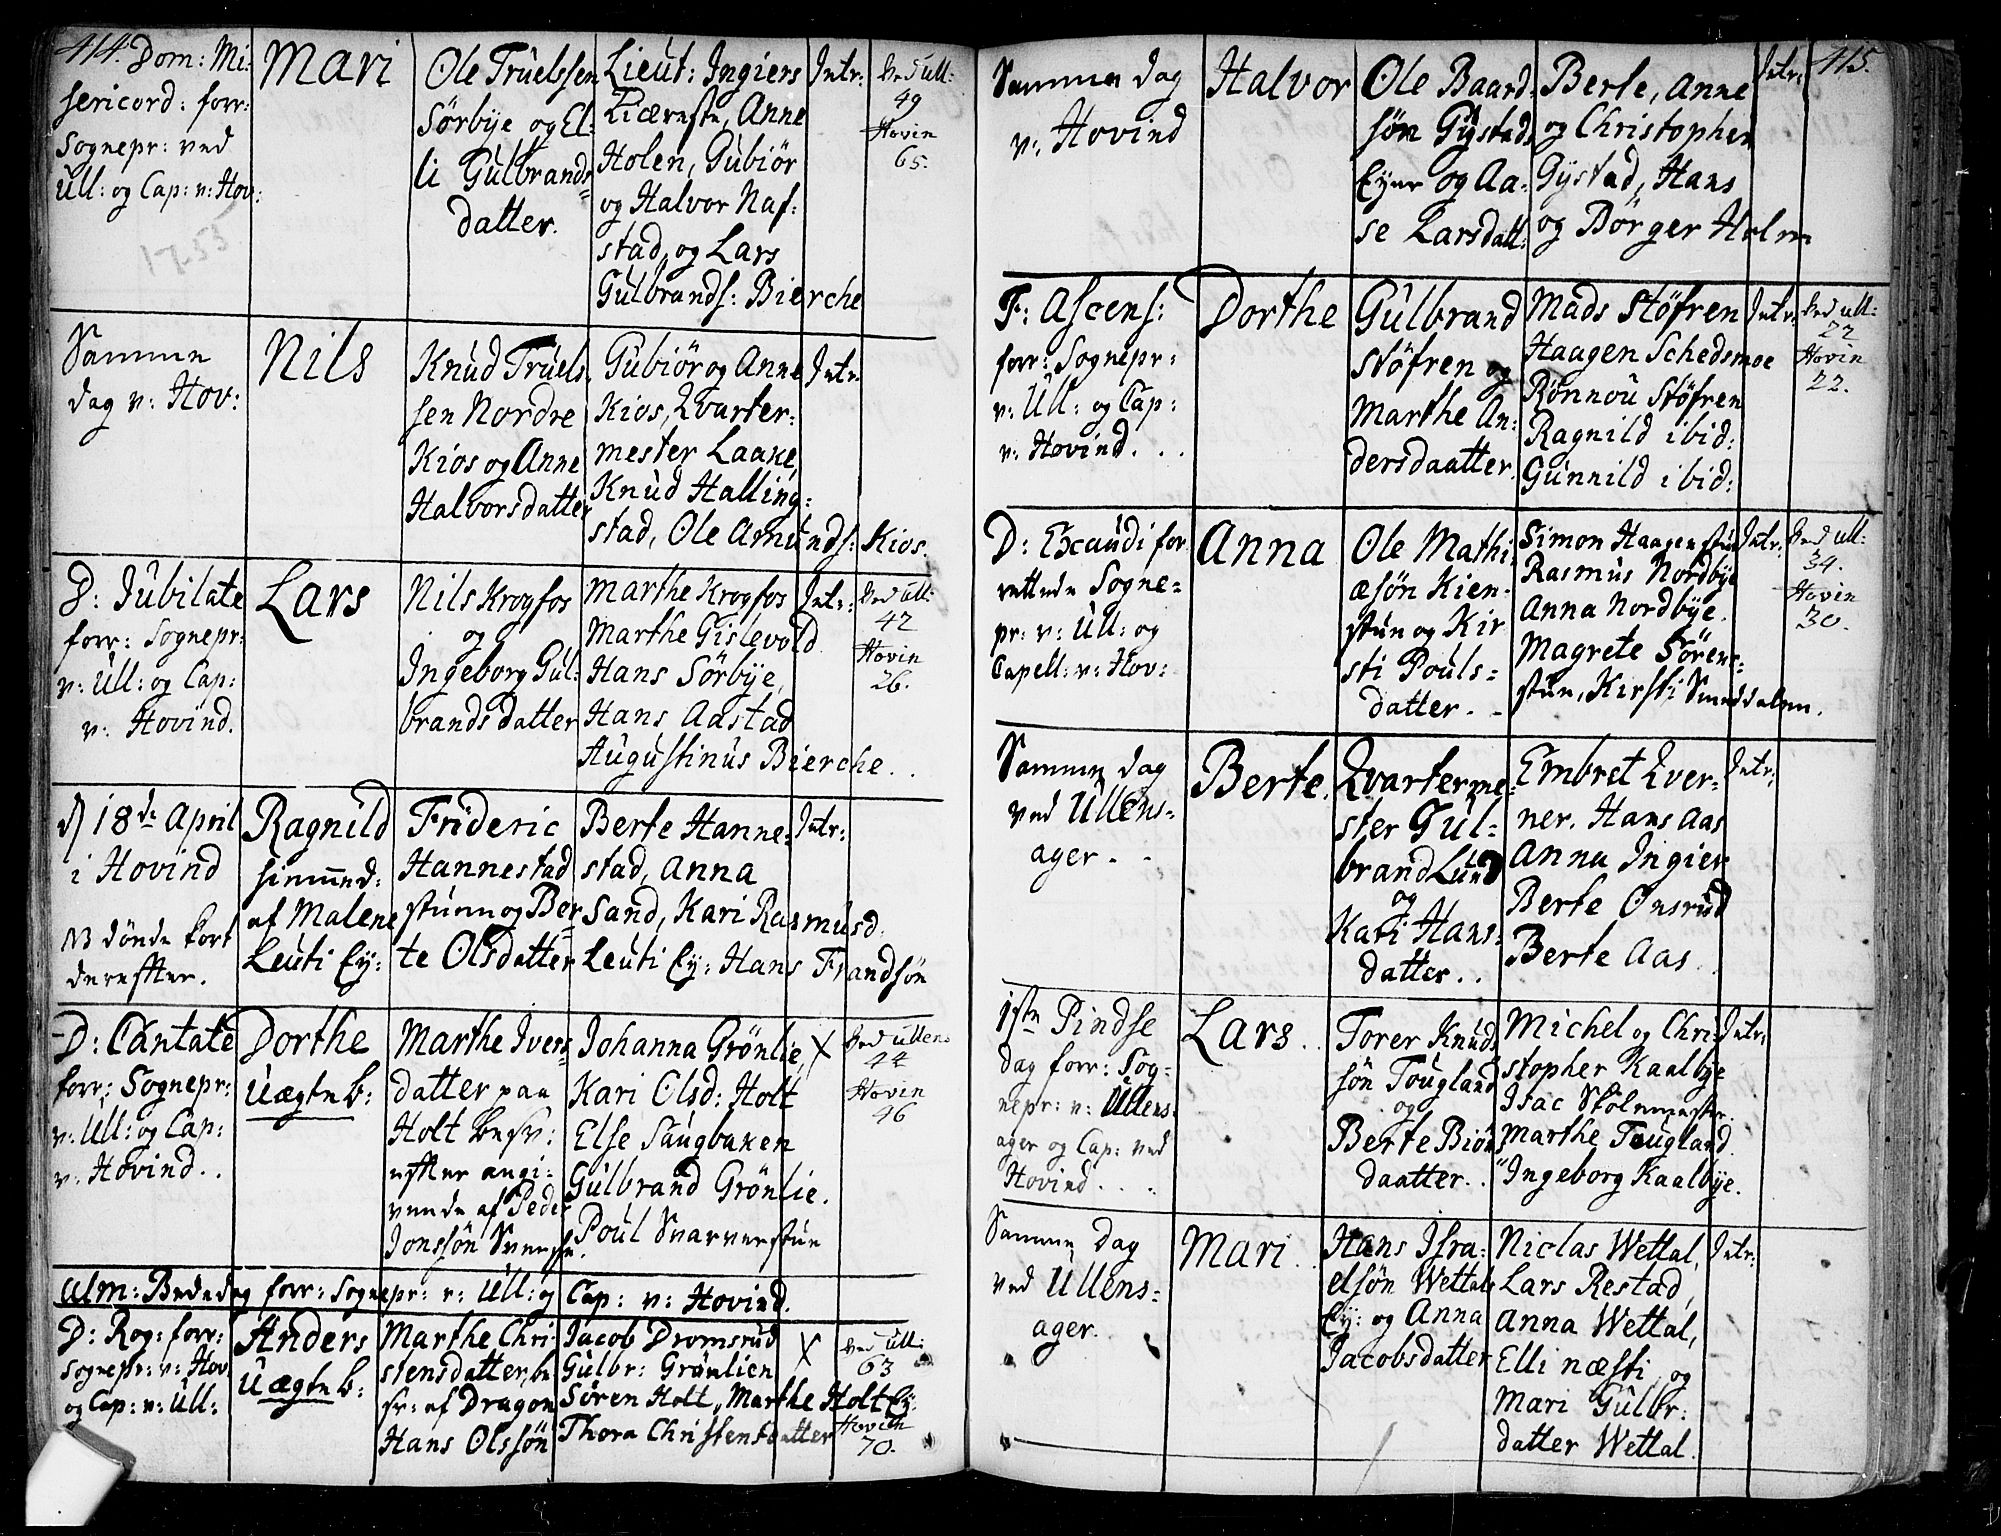 414.
Dom: Mi-
sericord: forr:
Sognepr: ved
Ull: og Cap: v: Hov:
1753
Mari
Ole Truelssen
Sörbye og El-
li Gulbrands-
datter.
Lieut: Ingiers
Kiæreste, Anne
Holen, Gubiör
og Halvor Naf-
stad, og Lars
Gulbrands: Bierche
Intr:
Ved ull:
49
Hovin
65.
Samme
dag v: Hov:
Nils
Knud Truels
sen Nordre
Kios og Anne
Halvorsdatter
Gubiör og Anne
Kios, Qvarter-
mester Laake,
Knud Halling-
stad, Ole Amunds: Kios.
Intr.
D: Jubilate
forr: Sognepr:
v: Ull: og Cap:
v: Hovind.
Lars
Nils Krogfos
og
Ingeborg Gul-
brandsdatter
Marthe Krogfos
Marthe Gislevold
Hans Sörbye,
Hans Aastad
Augustinus Bierche..
Intr:
Ved ull:
42
Hovin
26.
d 18de April
i Hovind
NB döde kort
derefter.
Ragnild
hiemmed:
af Malene
Leuti Ey:
Frideric
Hannestad
stuen og Ber-
te Olsdatter
Berte Hanne-
stad, Anna
Sand, Kari Rasmusd:
Leuti Ey: Hans Frandsön
Intr:
D: Cantate
forr: Sognepr:
v: Ull: og Cap:
v: Hovind..
Dorthe
Uægte b:
Marthe Ivers-
datter paa
Holt besv:
efter angi-
vende af Peder
Jonssön Svense.
Johanna Grönlie,
Kari Olsd: Holt
Else Saugbaken
Gulbrand Grönlie.
Poul Svarverstuen
X
Ved ullens
44
Hovin
46
Alm: Bededag forr: Sognepr: v: Ull: og Cap: v: Hovind.
D: Rog: forr:
Sognepr: v: Hov
og Cap: v: Ull:
Anders
Uægte b:
Marthe Chri
stensdatter, be
sv: af Dragon
Hans Olssön
Jacob Dromsrud
Gulbr: Grönlien
Sören Holt, Marthe Holt Ey:
Thora Christensdatter
X
Ved ull:
63
Hovin
70.
415.
Samme dag
v: Hovind
Halvor
Ole Baard-
sön Gystad
Eyer og Aa-
se Larsdatt:
Berte, Anne
og Christopher
Gystad, Hans
og Börger Holm
Intr:
F: Ascens:
forr: Sognepr:
v: Ull: og Cap:
v: Hovind...
Dorthe
Gulbrand
Stöfren og
Marthe An-
dersdaatter
Mads Stöfren
Haagen Schedsmoe
Rönnou Stöfren
Ragnild ibid:
Gunnild ibid:
Intr:
Ved ull:
22
Hovin
22.
D: Exaudi for
rettede Sogne-
pr: v: Ull: og
Capell: v: Hov:
Anna
Ole Mathi
æsön Kien-
stuen og Kir
sti Pouls-
datter.
Simon Haagenstuen
Rasmus Nordbye
Anna Nordbye.
Magrete Sören-
stuen, Kirsti Smeddalen.
Intr:
Ved ull:
34.
Hovin
30.
Samme dag
ved Ullens-
ager.
Berte.
Qvarterme-
ster Gul-
brand Lund
og
Kari Hans-
datter..
Embret Qver-
ner. Hans Aas
Anna Ingier
Berte Onsrud
Berte Aas
Intr:
1ste Pindse
dag forr: Sog-
nepr: v: Ullens-
ager og Cap: ved
Hovind...
Lars.
Torer Knud
sön Tougland
og
Berte Biön
daatter..
Michel og Chri-
stopher Kaalbye
Isac Skolemester
Marthe Tougland
Ingeborg Kaalbye.
Intr:
Samme dag
ved Ullens-
ager.
Mari.
Hans Isra-
elsön Wettals
Ey: og Anna
Jacobsdatter
Niclas Wettal,
Lars Restad,
Anna Wettal,
Elli næsti, og
Mari Gulbr:
datter Wettal.
Intr: